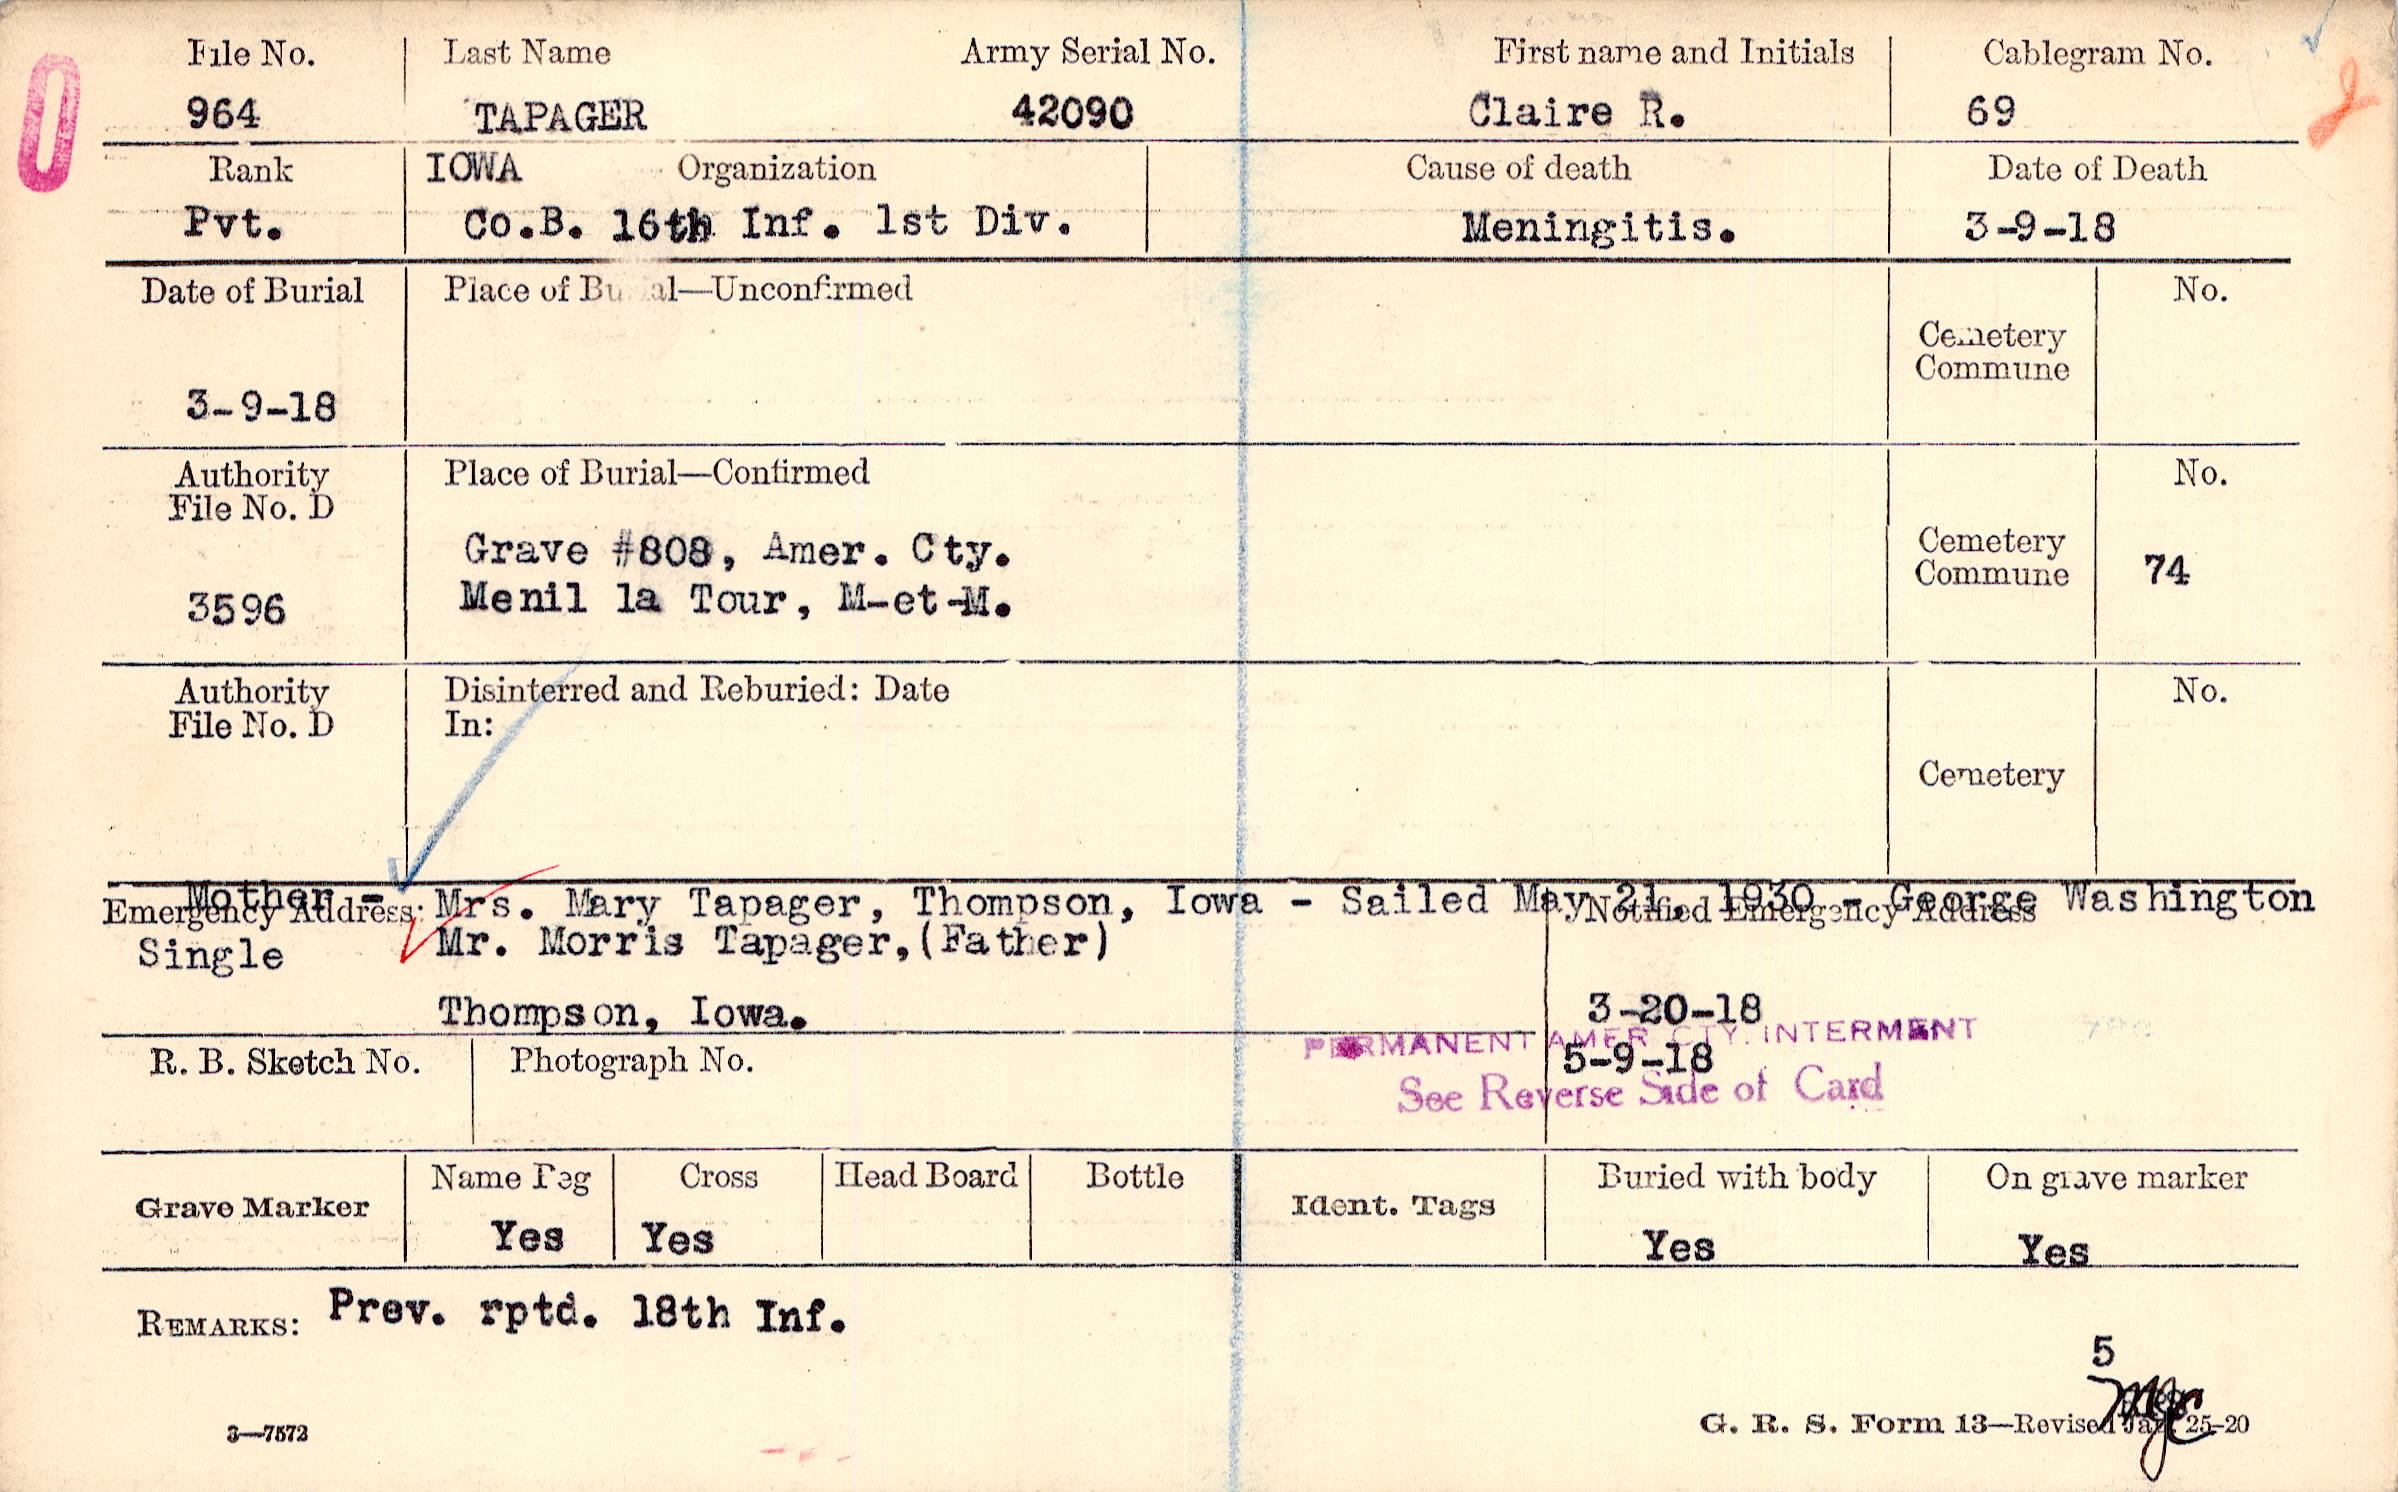 File No. Last Name Army Serial No. First name and Initials Cablegram No.
964 TAPAGER 42090 Claire R. 69
Rank IOWA Organization Cause of death Date of Death
Pvt. Co.B. 16th Inf. 1st Div. Meningitis. 3-9-18
Date of Burial Place of Burial—Unconfirmed No.
Cemetery
Commune
3-9-18
Authority Place of Burial—Confirmed No.
File No. D
Grave #808, Amer. Cty. Cemetery
Commune 74
3596 Menil la Tour, M-et-M.
Authority Disinterred and Reburied: Date No.
File No. D In:
Cemetery
Mother - Mrs. Mary Tapager, Thompson, Iowa - Sailed May 21, 1930 - George Washington
Emergency Address: Notified Emergency Address
Single Mr. Morris Tapager,(Father)
Thompson, Iowa. 3-20-18
PERMANENT AMER CTY. INTERMENT
R. B. Sketch No. Photograph No. 5-9-18
See Reverse Side of Card
Grave Marker Name Peg Cross Head Board Bottle Ident. Tags Buried with body On grave marker
Yes Yes Yes Yes
REMARKS: Prev. rptd. 18th Inf.
5
3—7572 G. R. S. Form 13—Revised Jan. 25-20